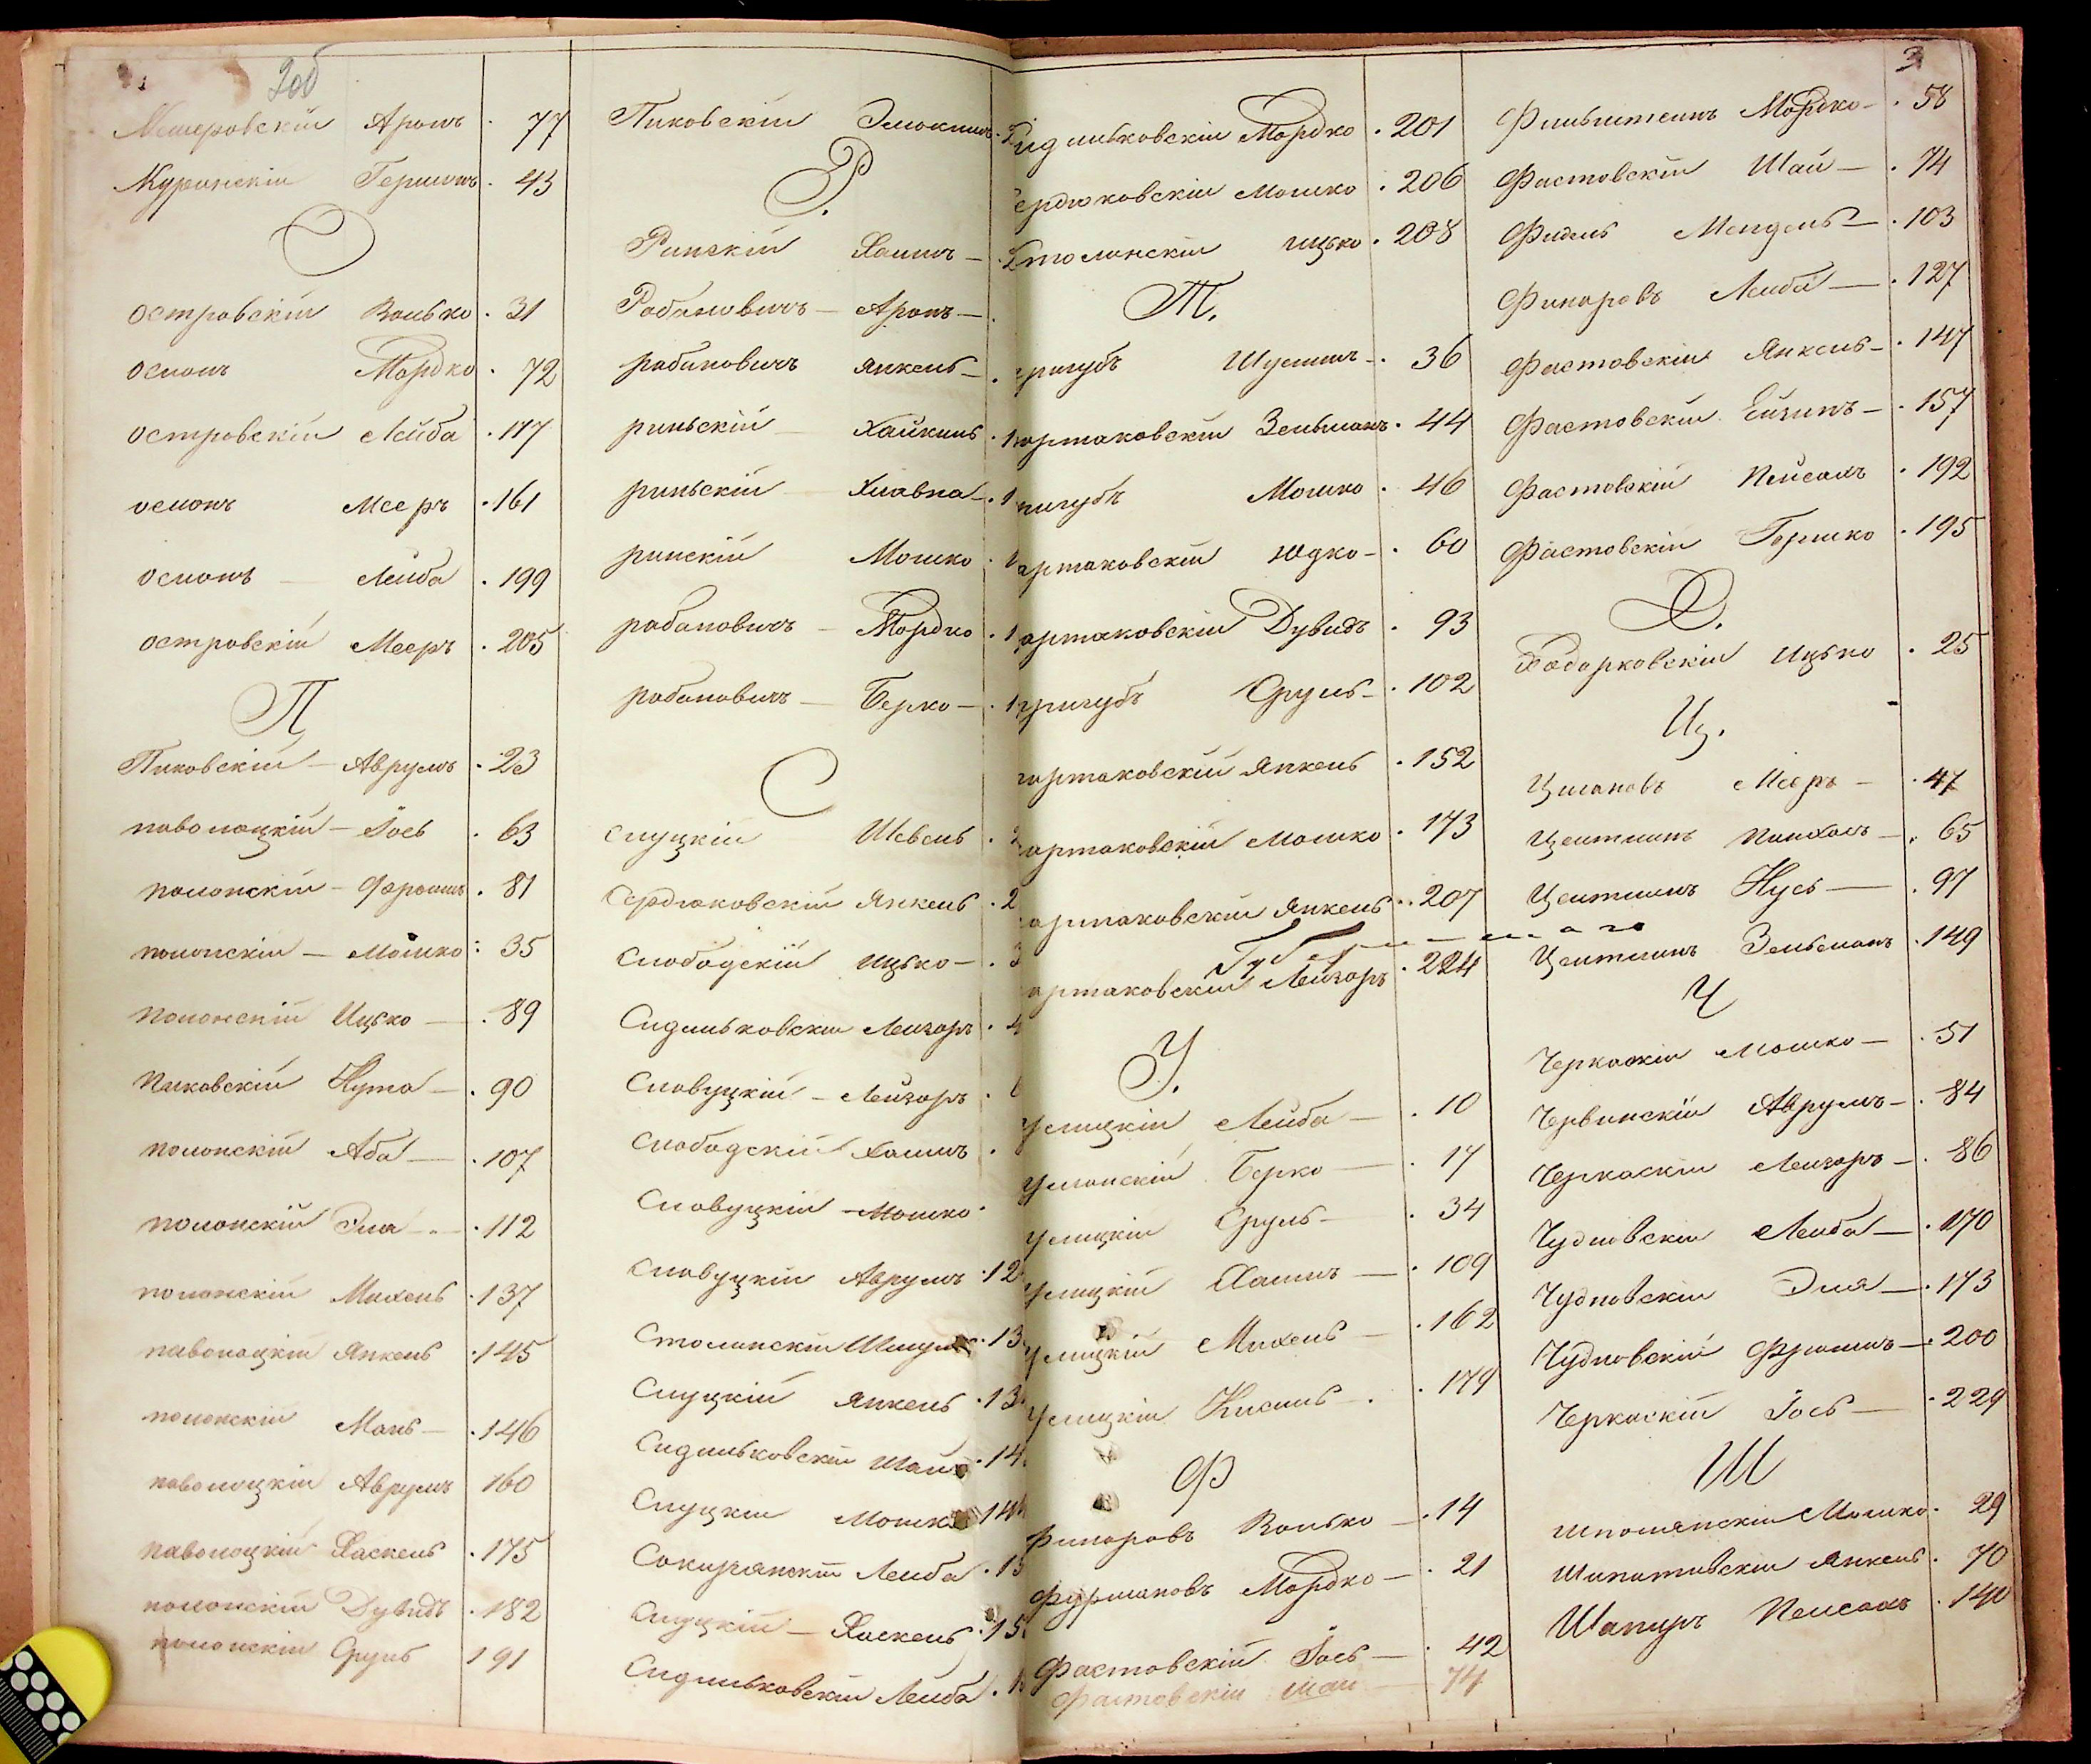 2об
Мошровскій Аронъ 77
Журинскій Гершонъ 43
О
Островскій Волько 31
Осмонъ Мордко 72
Островскій Лейба 117
Осмонъ Мееръ 161
Осмонъ Лейба 199
Островскій Мееръ 205
П
Пиковскій Аврумъ 23
паволоцкій Іось 63
полонскій Фроимъ 81
полонскій Мошко 35
полонскій Ицько 89
Пиковскій Нута 90
полонскій Аба 107
полонскій Эля 112
полонскій Михель 137
паволоцкій Янкель 145
полонскій Мань 146
паволоцкій Аврумъ 160
паволоцкій Хаскель 175
полонскій Дувидъ 182
полонскій Сруль 191
Пиковскій
Р.
Ринскій Хаимъ
Рабиновичъ Аронъ
рабиновичъ Янкель
риньскій Хайкинъ
риньскій Хлавна
ринскій Мошко
рабиновичъ Мордко
рабиновичъ Берко
С
слуцкій Шевель
Сердюковскій Янкель
Слободскій Ицько
Сидильковскій Лейзоръ
Славуцкій Лейзоръ
Слободскій Хаимъ
Славуцкій Мошко
Славуцкій Аврумъ 12
Столинскій 13
Слуцкій Янкель 13
Сидильковскій 14
Слуцкій Мошко 14
Сокирянскій Лейба 15
Слуцкій Хаскель 15
Сидильковскій Лейба
3
идильковскій Мордко 201
ердюковскій Мошко 206
Столинскій Ицько 208
Т.
ригубъ Шулимъ 36
артаковскій Зельманъ 44
ригубъ Мошко 46
артаковскій Юдко 60
артаковскій Дувидъ 93
ригубъ Сруль 102
артаковскій Янкель 152
артаковскій Мошко 173
артаковскій Янкель 207
артаковскій Лейзоръ 224
У.
Улицкій Лейба 10
Уманскій Берко 17
Улицкій Сруль 34
Улицкій Хаимъ 109
Улицкій Михель 162
Улицкій Кисиль 179
Ф
Финаровъ Волько 14
Фурмановъ Мордко 21
Фастовскій Іось 42
Фастовскій Шаи 74
Финьштеинъ Мордко 58
Фастовскій Шаи 74
Фидель Мендель 103
Финаровъ Лейба 127
Фастовскій Янкель 147
Фастовскій Ейзикъ 157
Фастовскій Пейсахъ 192
Фастовскій Гершко 195
Х.
Ходорковскій Ицько 25
Ц.
Цигановъ Мееръ 47
Цейтлинъ Пинхасъ 65
Цейтлинъ Нусь 97
Цейтлинъ Зельманъ 149
Ч
Черкаскій Мошко 51
Червинскій Аврумъ 84
Черкаскій Лейзоръ 86
Чудновскій Лейба 170
Чудновскій Эля 173
Чудновскій Фроимъ 200
Черкаскій Іось 229
Ш
Шполянскій Мошко 29
Шипатовскій Янкель 70
Шапиръ Пейсахъ 140